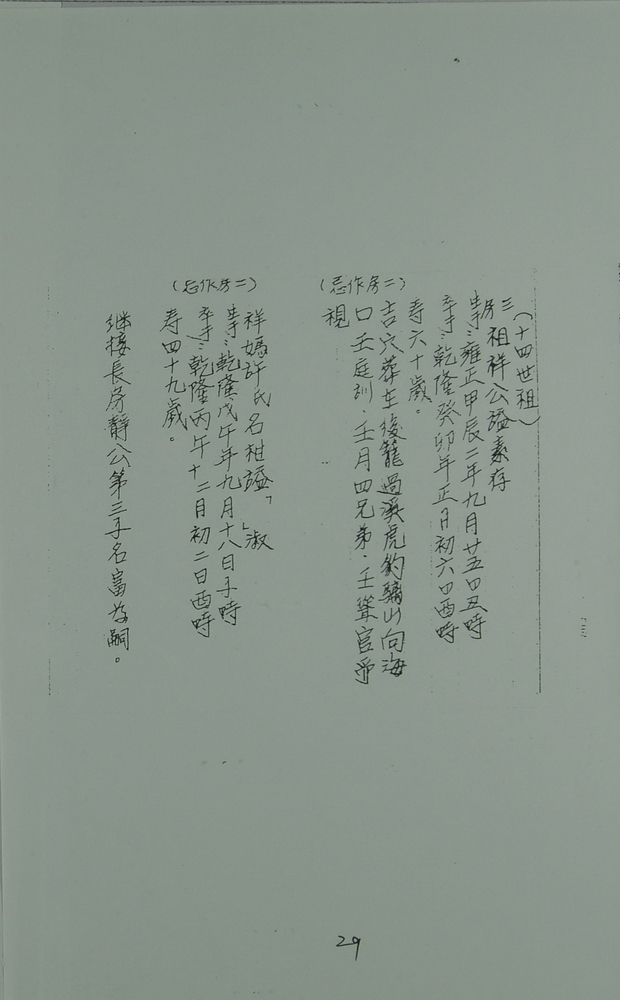 （十四世祖）
三房祖祥公諡素存
生于：雍正甲辰二年九月廿五日丑時
卒于：乾隆癸卯年正月初六日酉時
寿六十歲。
（忌作房二）
吉穴葬在後籠過溪虎豹山向海
口壬庭訓．壬月四兄弟．壬
視
祥媽許氏名柑諡「」淑
生于：乾隆戊午年九月十八日子時
卒于：乾隆丙午十二月初二日酉時
寿四十九歲。
（忌作房二）
继接長房靜公第三子名富為嗣。
29